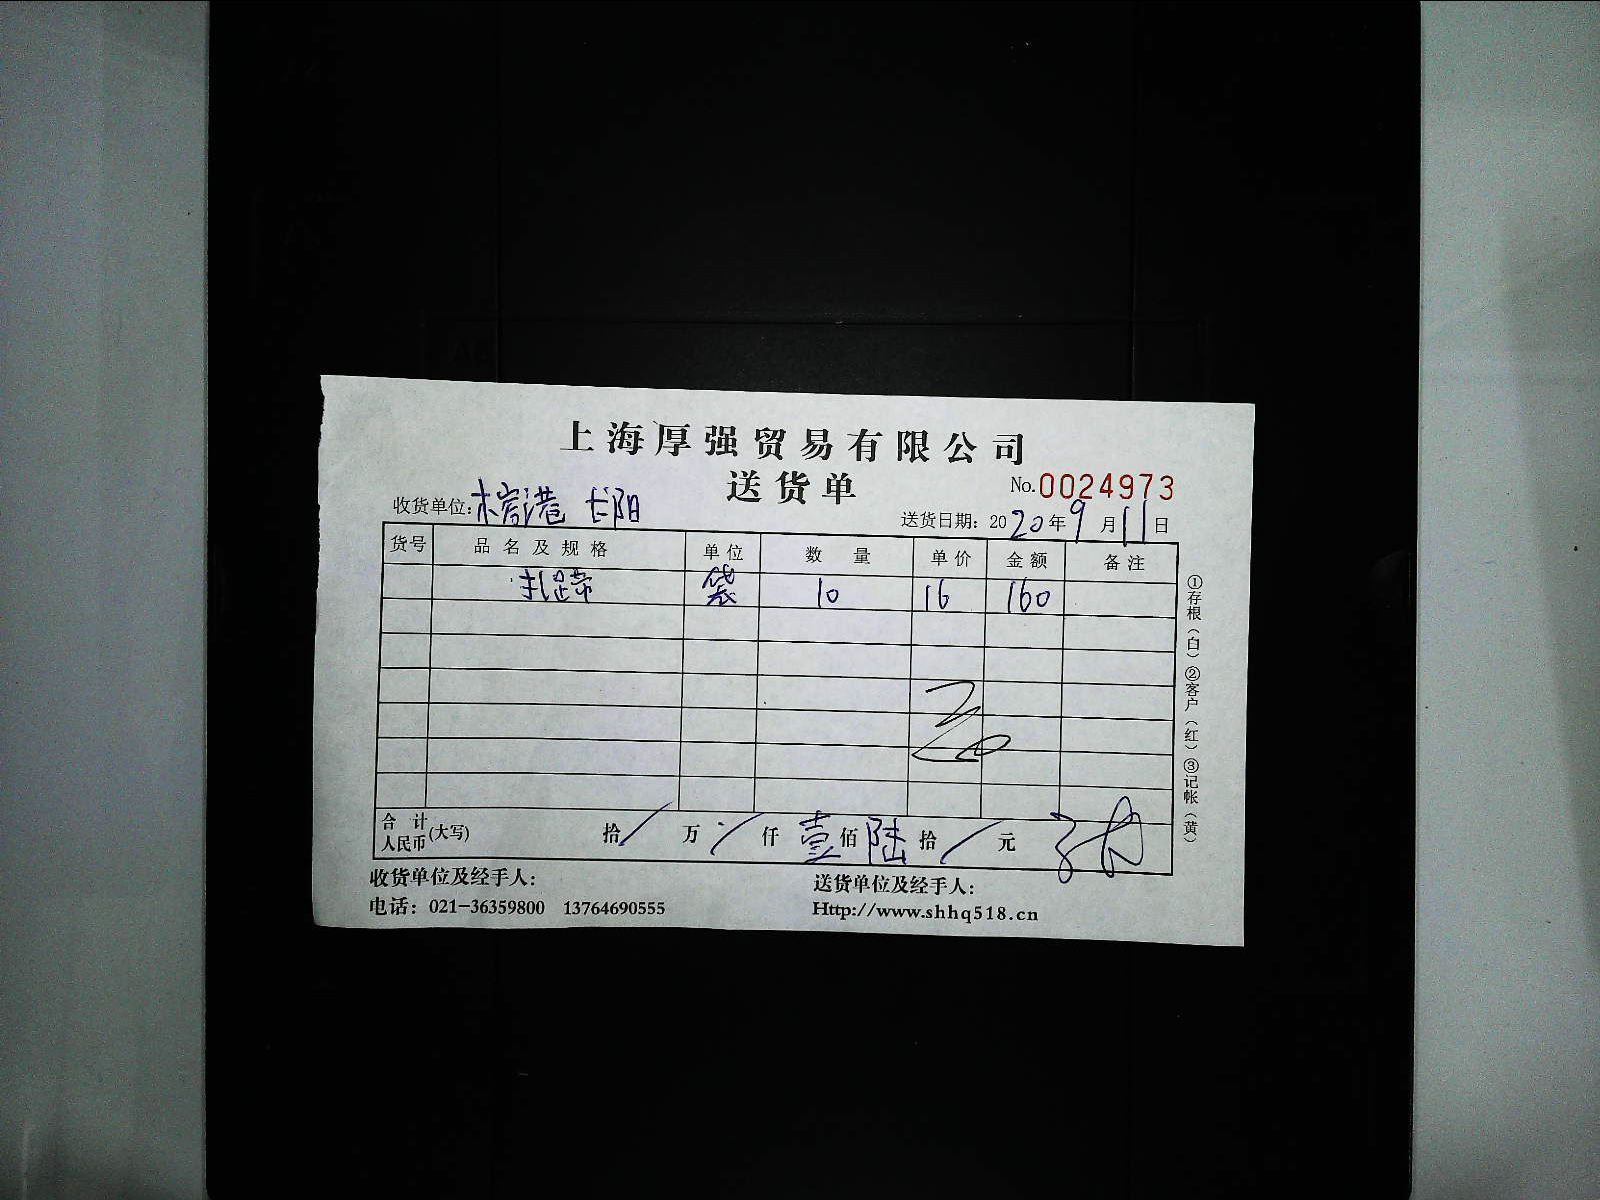 上海厚强贸易有限公司
送货单
No.0024973
收货单位: 港 长阳
送货日期: 2020年9月11日
货号 品名及规格 单位 数量 单价 金额 备注
扎蹄 袋 10 16 160
合计人民币(大写) 拾/ 万/ 仟 壹佰 陆拾 / 元
收货单位及经手人:
送货单位及经手人:
电话: 021-36359800 13764690555
Http://www.shhq518.cn
①存根(白)②客户(红)③记帐(黄)